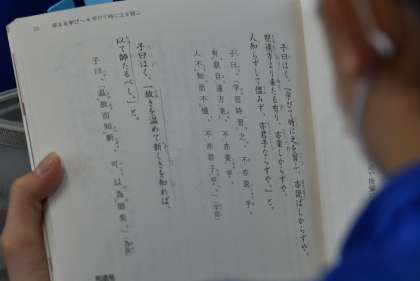 子曰はく、「学びて時に之を習ふ、亦説ばしからずや。
朋遠方より来たる有り、亦楽しからずや。
人知らずして慍みず、亦君子ならずや。」と。
子曰、「学而時習之、不亦説乎。
有朋自遠方来、不亦楽乎。
人不知而不慍、不亦君子乎。」
子曰はく、「故きを温めて新しきを知れば、
以て師たるべし。」と。
子曰、「温故而知新、可以為師矣。」